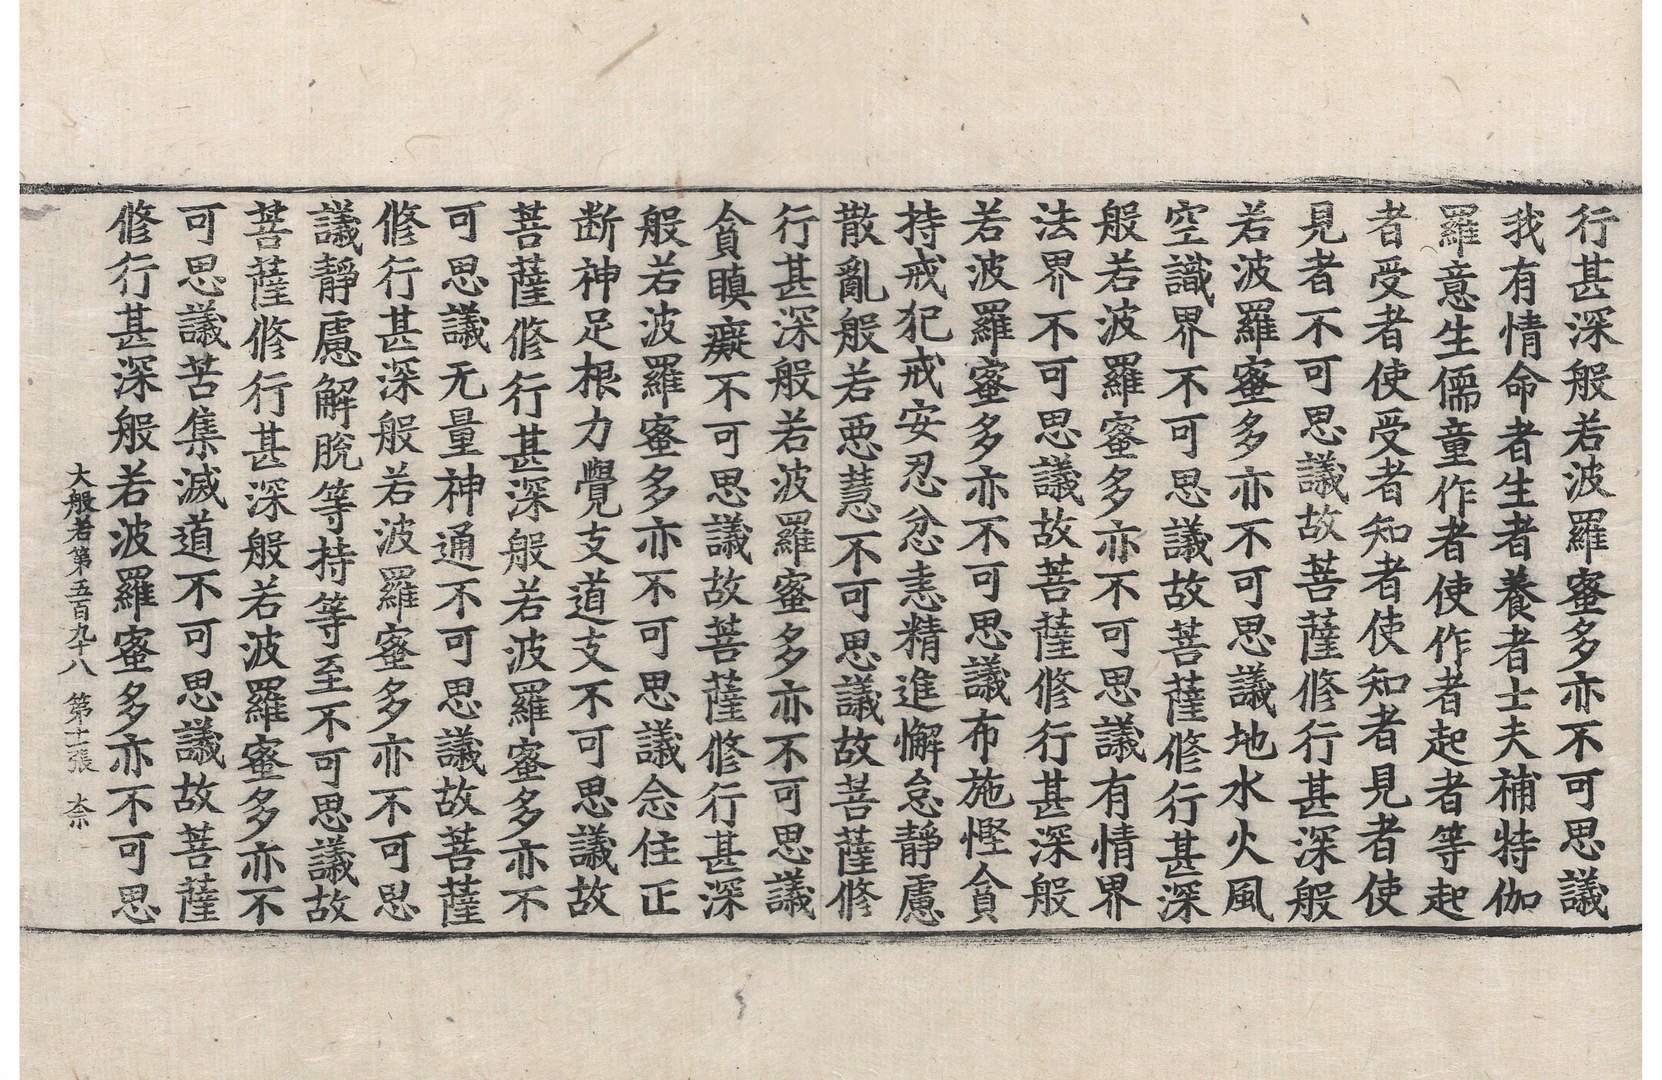 行甚深般若波羅蜜多亦不可思議
我有情命者生者養者士夫補特伽
羅意生儒童作者使作者起者等起
者受者使受者知者使知者見者使
見者不可思議故菩薩修行甚深般
若波羅蜜多亦不可思議地水火風
空識界不可思議故菩薩修行甚深
般若波羅蜜多亦不可思議有情界
法界不可思議故菩薩修行甚深般
若波羅蜜多亦不可思議布施慳貪
持戒犯戒安忍忿恚精進懈怠靜慮
散亂般若惡慧不可思議故菩薩修
行甚深般若波羅蜜多亦不可思議
貪瞋癡不可思議故菩薩修行甚深
般若波羅蜜多亦不可思議念住正
断神足根力覺支道支不可思議故
菩薩修行甚深般若波羅蜜多亦不
可思議无量神通不可思議故菩薩
修行甚深般若波羅蜜多亦不可思
議靜慮解脫等持等至不可思議故
菩薩修行甚深般若波羅蜜多亦不
可思議苦集滅道不可思議故菩薩
修行甚深般若波羅蜜多亦不可思
大般若第五百九十八 第十張 柰